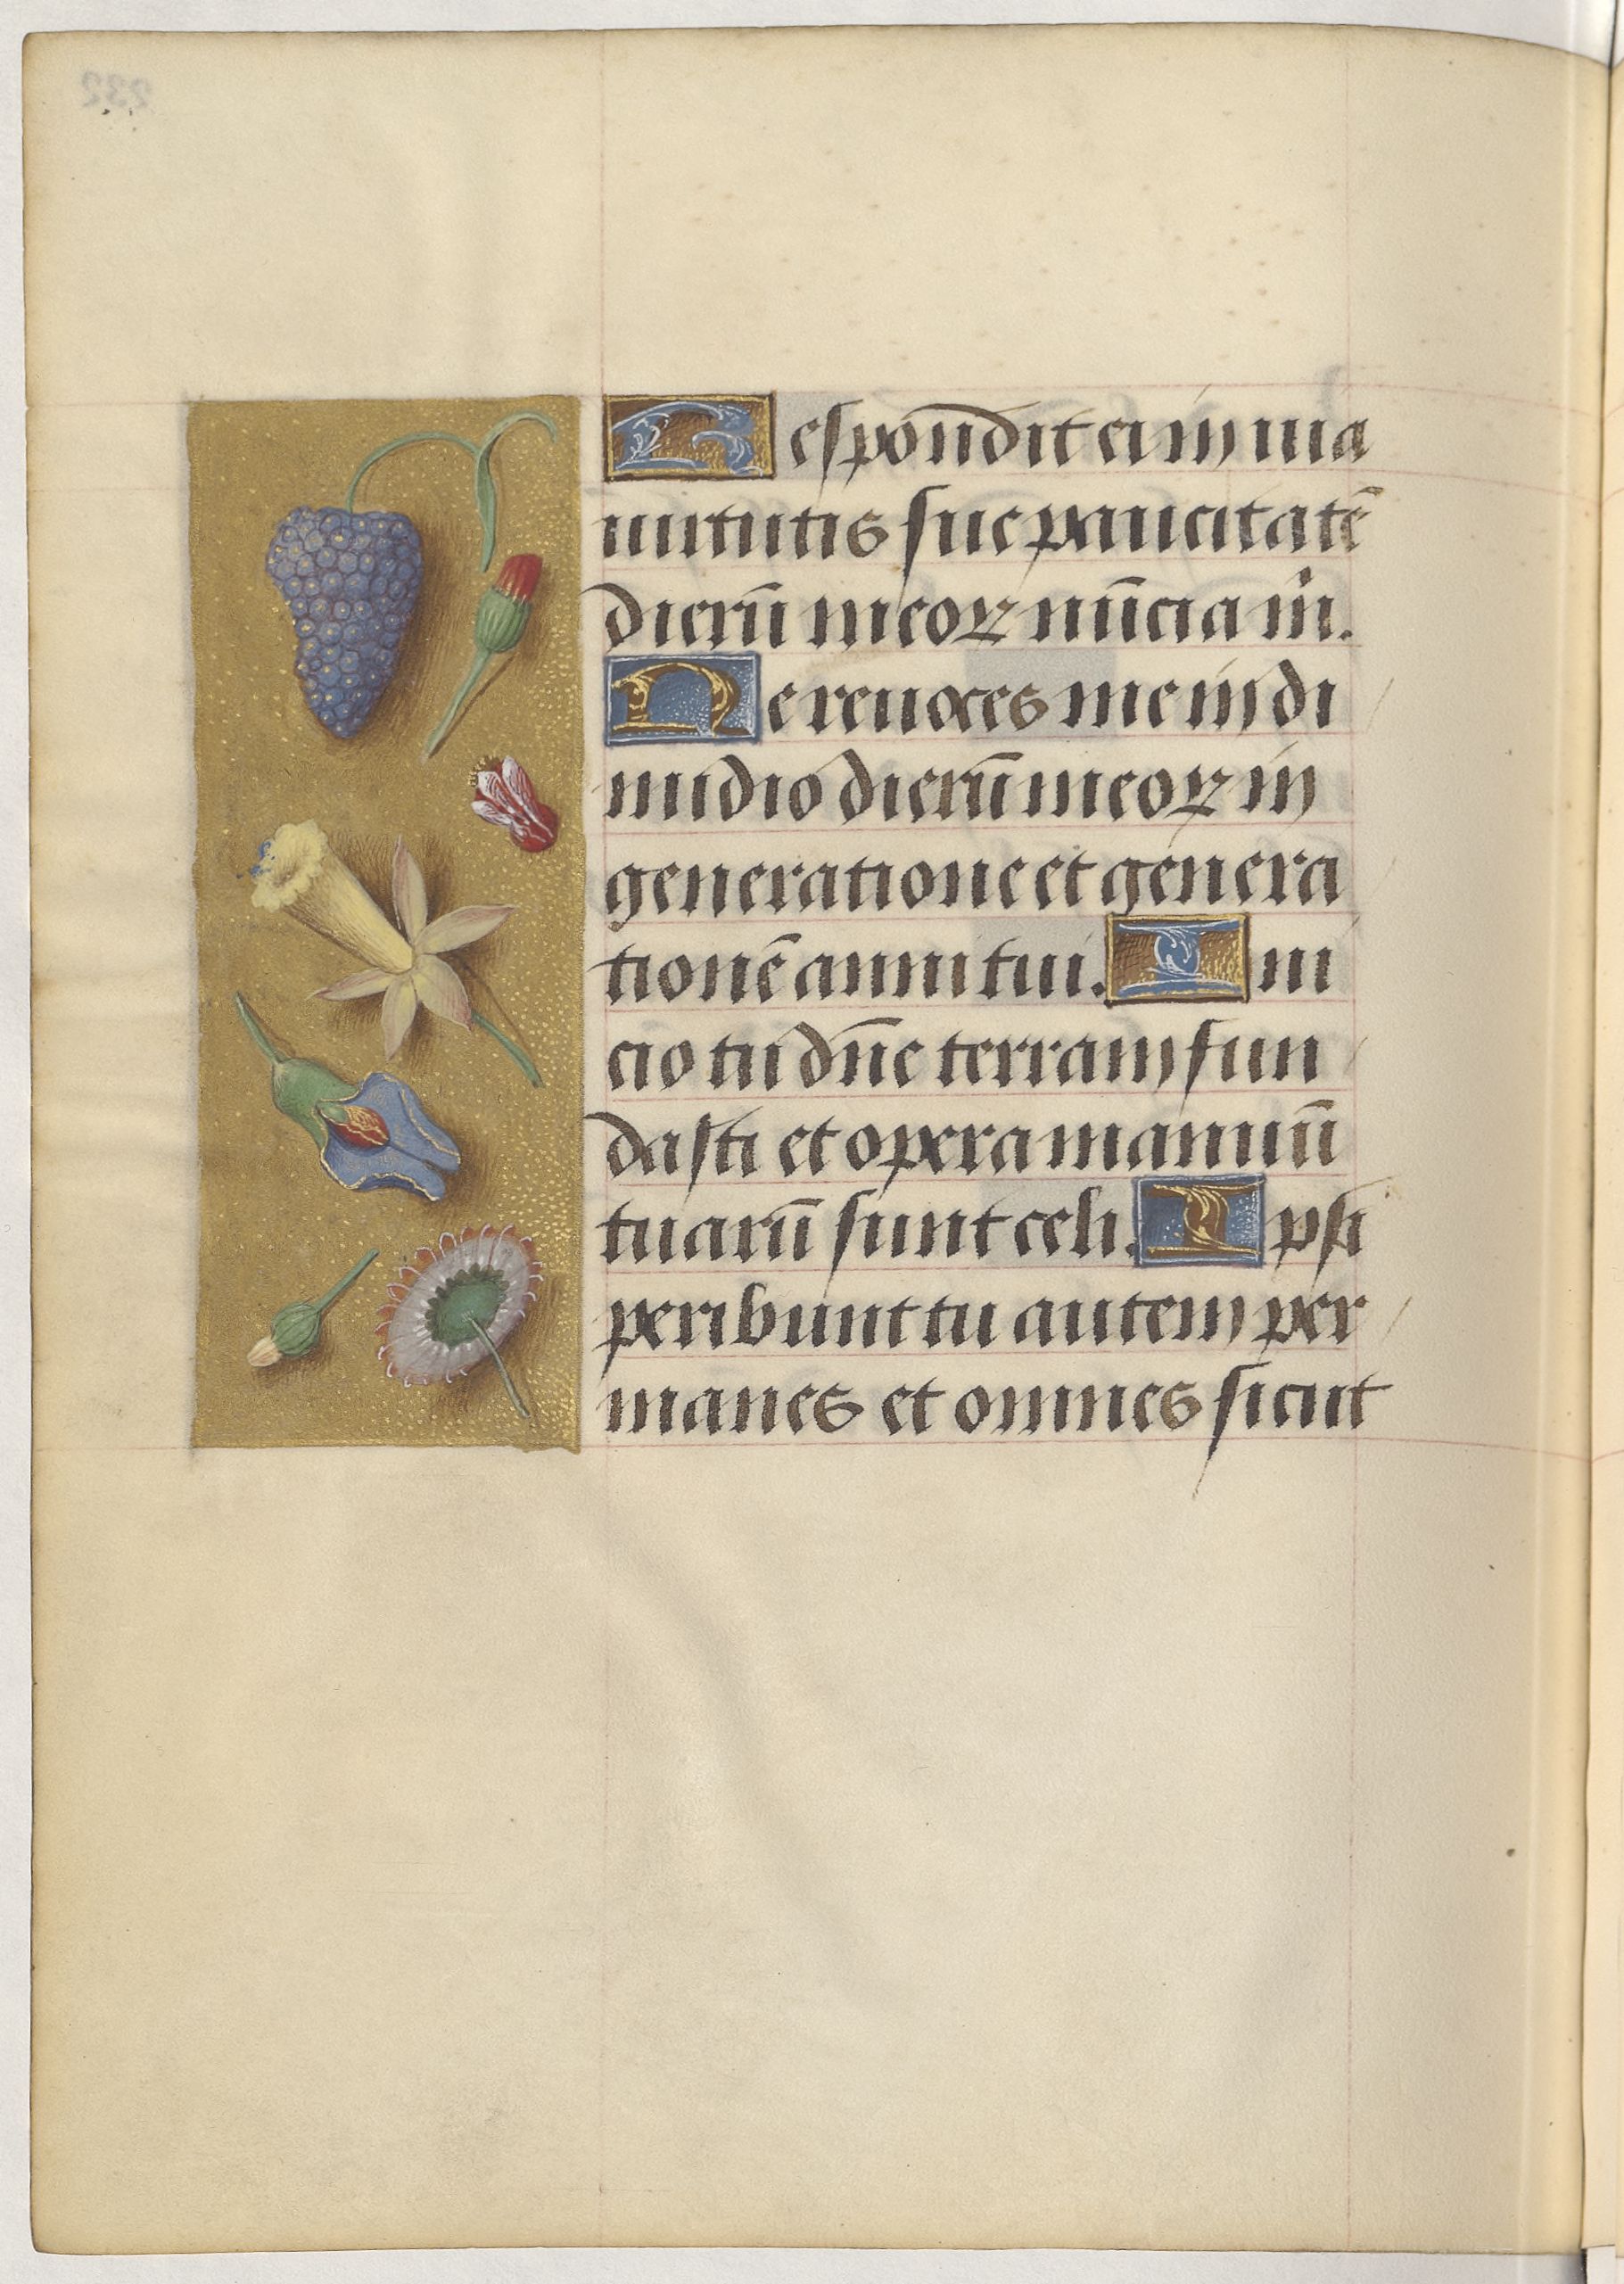 Respondit ei in uia
uirtutis sue paucitatē
dierū meoꝝ nūcia m̊.
Ne reuoces me in di
midio dierū meoꝝ in
generatione et genera
tionē anni tui. Ini
cio tu dn̄e terram fun
dasti et opera manuū
tuarū sunt celi. Ipsi
peribunt tu autem per
manes et omnes sicut